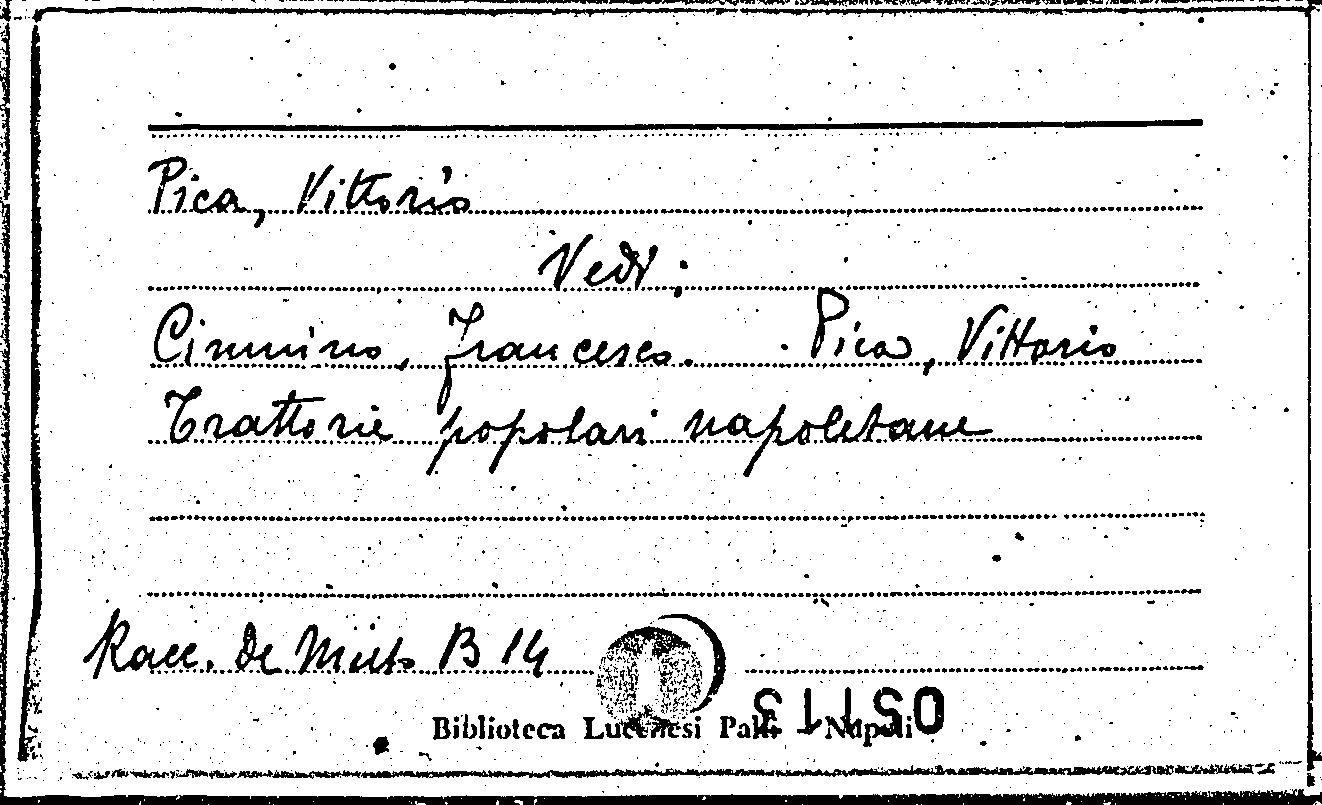 Pica, Vittorio
Vedi:
Cimmino, Francesco. - Pica, Vittorio
Trattorie popolari napoletane
Racc. De Mura B 14
Biblioteca Lucchesi Palli - Napoli